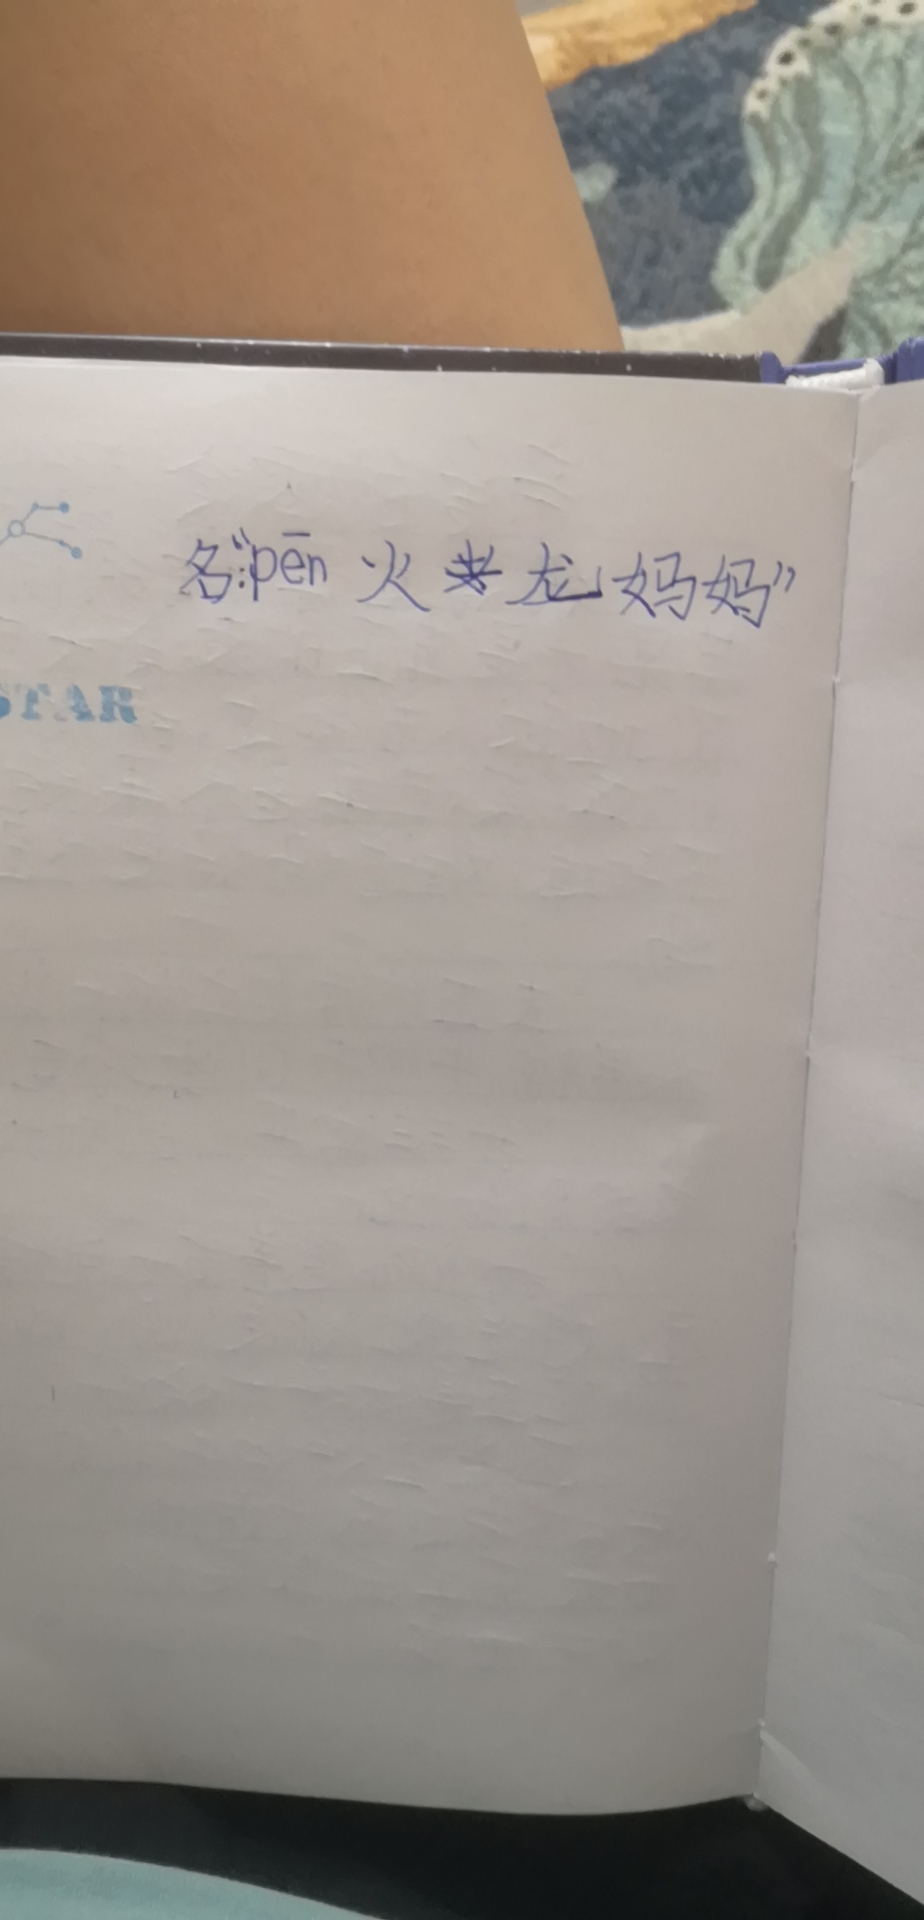 名:“pēn 火龙妈妈”
STAR